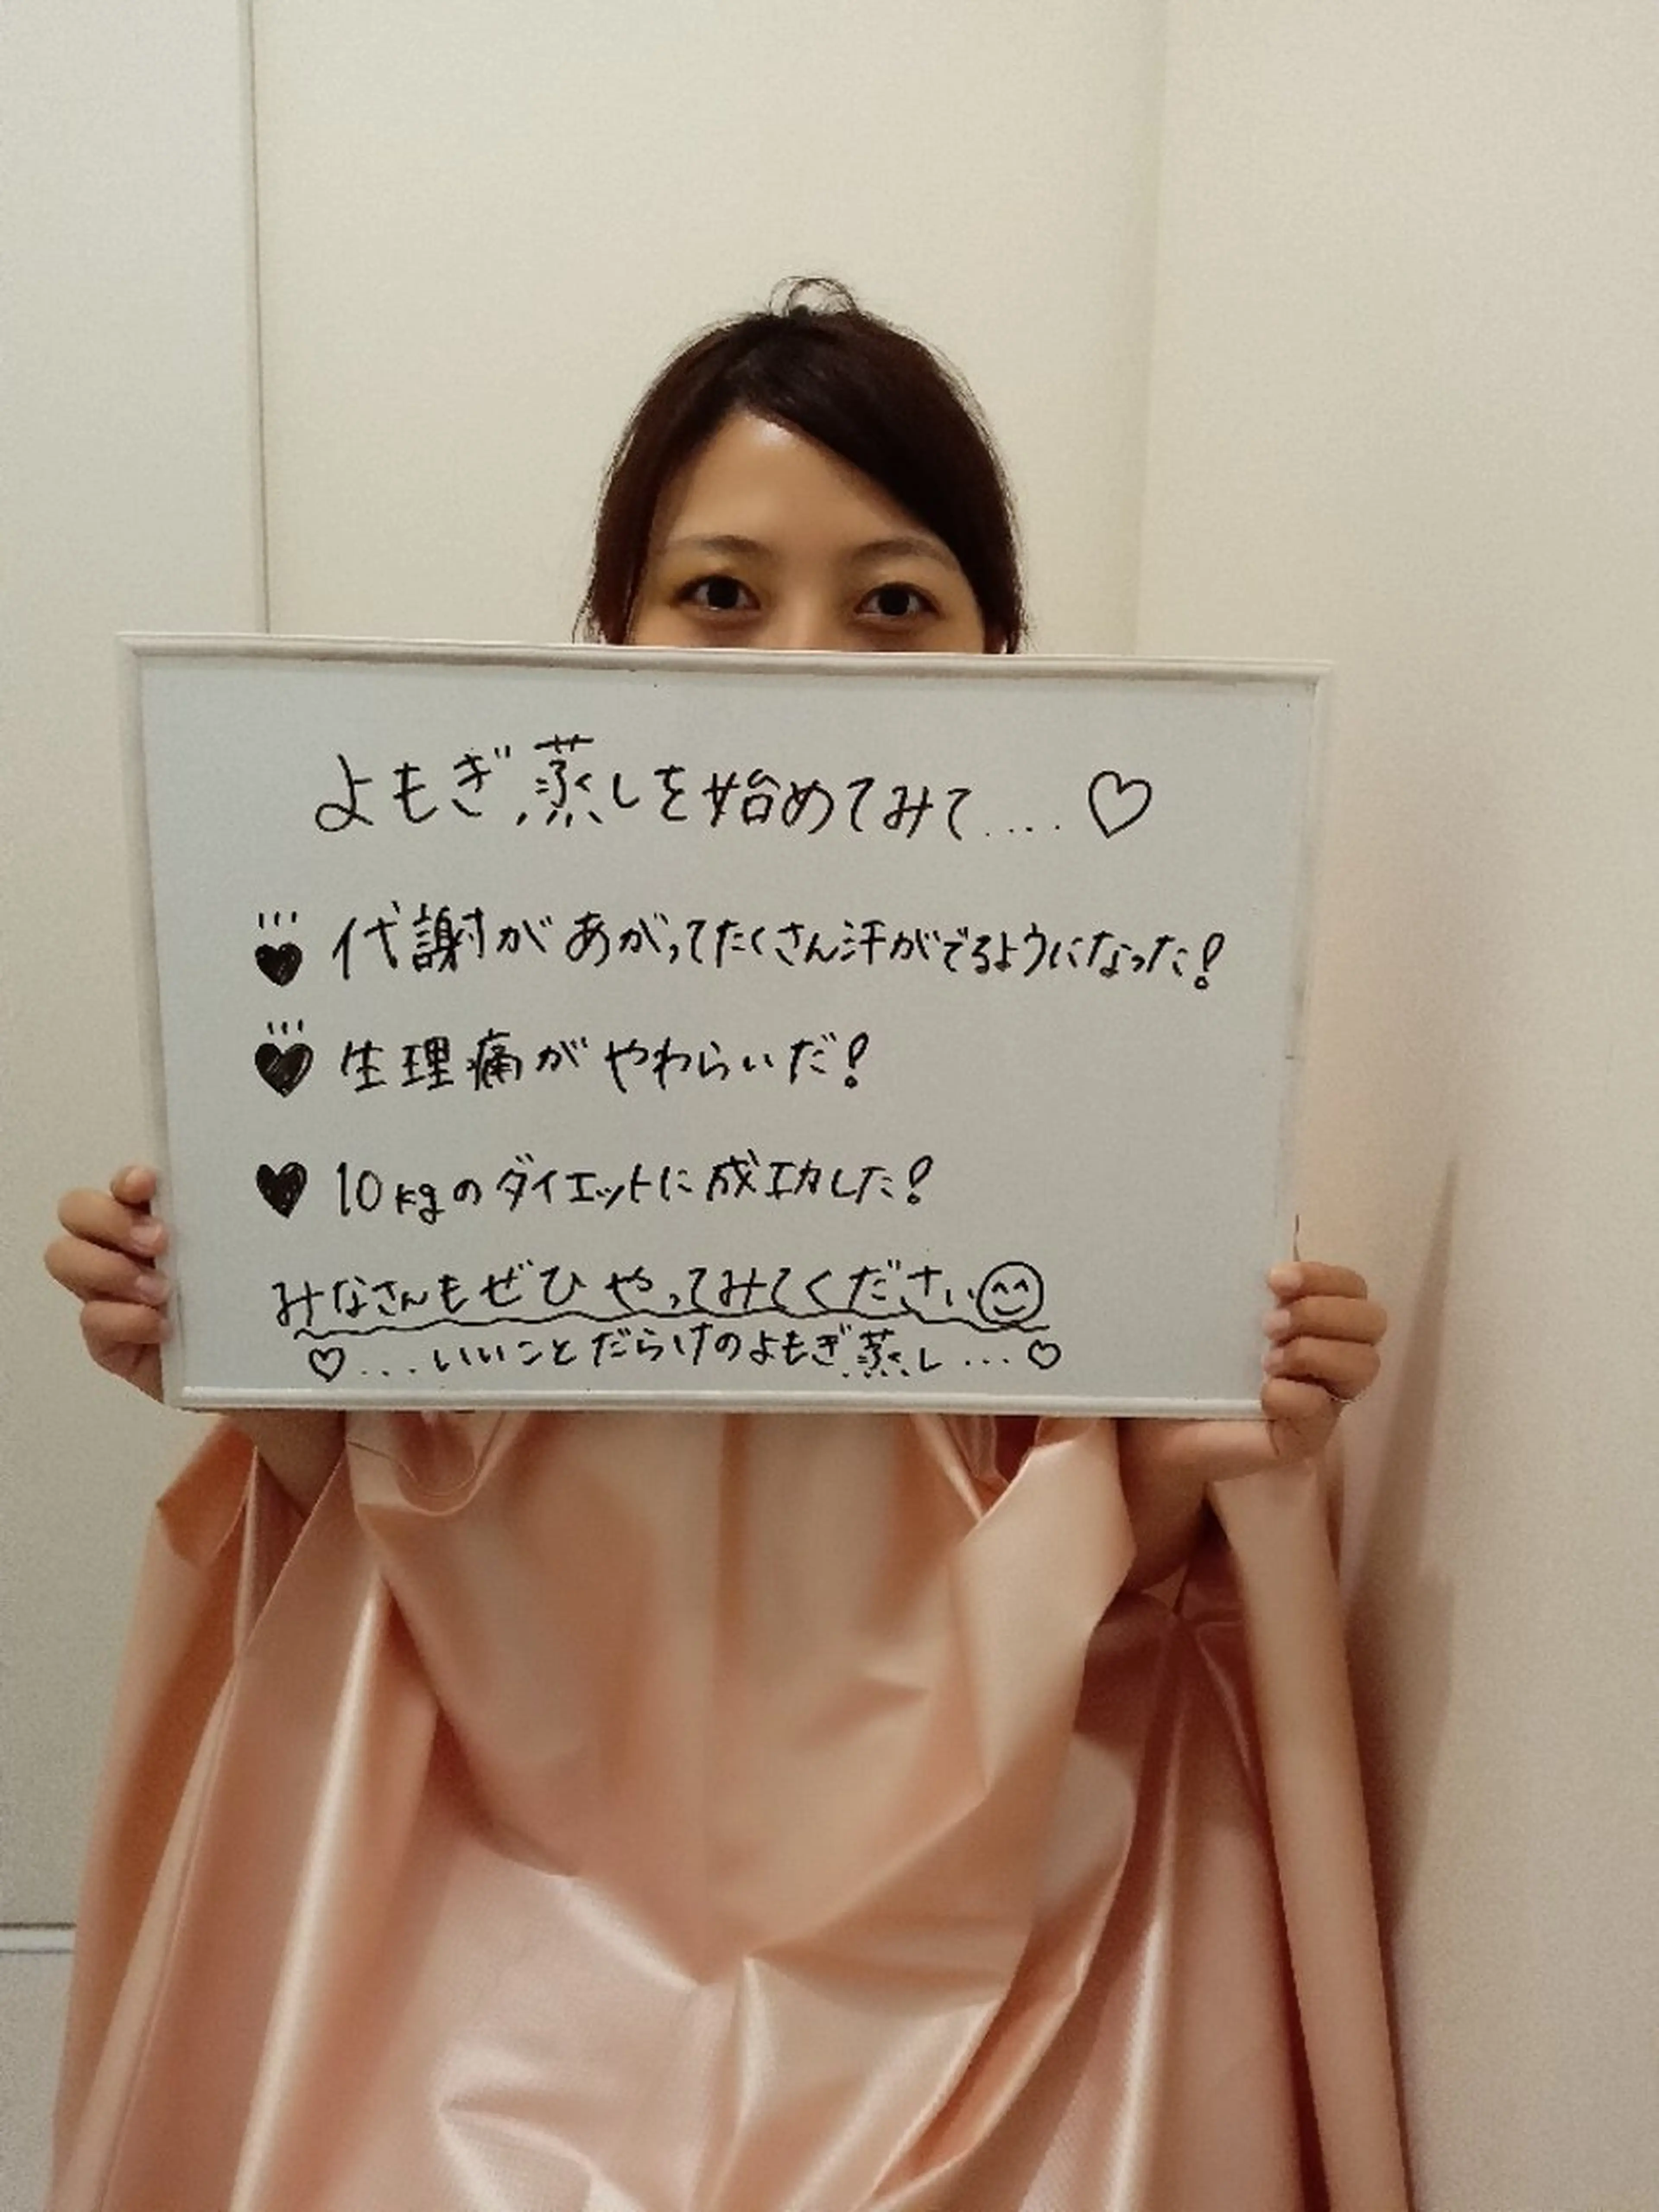 よもぎ蒸しを始めてみて....♡
♥ 代謝があがってたくさん汗がでるようになった!
♥ 生理痛がやわらいだ!
♥ 10kgのダイエットに成功した!
みなさんもぜひやってみてください😊
♡...いいことだらけのよもぎ蒸し...♡